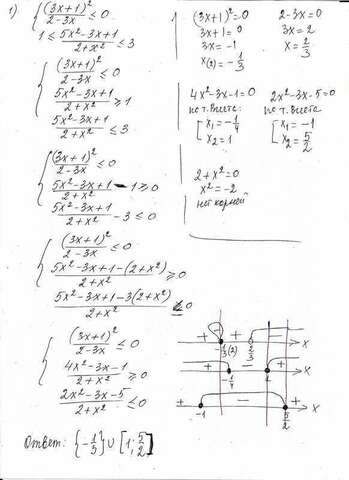 1) { (3x+1)² / (2-3x) ≤ 0
1 ≤ (5x²-3x+1) / (2+x²) ≤ 3
{ (3x+1)² / (2-3x) ≤ 0
(5x²-3x+1) / (2+x²) ≥ 1
(5x²-3x+1) / (2+x²) ≤ 3
{ (3x+1)² / (2-3x) ≤ 0
(5x²-3x+1) / (2+x²) - 1 ≥ 0
(5x²-3x+1) / (2+x²) - 3 ≤ 0
{ (3x+1)² / (2-3x) ≤ 0
(5x²-3x+1-(2+x²)) / (2+x²) ≥ 0
(5x²-3x+1-3(2+x²)) / (2+x²) ≤ 0
{ (3x+1)² / (2-3x) ≤ 0
(4x²-3x-1) / (2+x²) ≥ 0
(2x²-3x-5) / (2+x²) ≤ 0
Ответ: {-1/3} ∪ [1; 5/2]
(3x+1)²=0
3x+1=0
3x=-1
x(2)=-1/3
2-3x=0
3x=2
x=2/3
4x²-3x-1=0
по т. Виета:
[ x₁=-1/4
x₂=1
2x²-3x-5=0
по т. Виета
[ x₁=-1
x₂=5/2
2+x²=0
x²=-2
нет корней
+ + - x
-1/3(2) 2/3
+ - + x
-1/4 1
+ - + x
-1 5/2